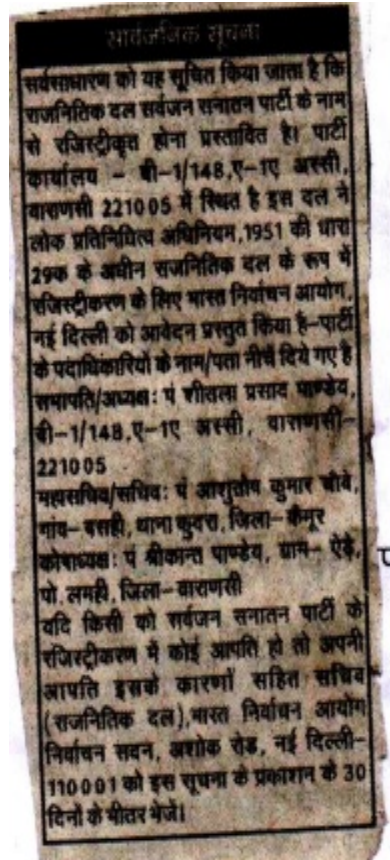 सार्वजनिक सूचना
सर्वसाधारण को यह सूचित किया जाता है कि
राजनितिक दल सर्वजन सनातन पार्टी के नाम
से रजिस्ट्रीकृत होना प्रस्तावित है। पार्टी
कार्यालय – बी-1/148,ए-1ए अस्सी,
वाराणसी 221005 में स्थित है इस दल ने
लोक प्रतिनिधित्व अधिनियम,1951 की धारा
29क के अधीन राजनितिक दल के रूप में
रजिस्ट्रीकरण के लिए भारत निर्वाचन आयोग,
नई दिल्ली को आवेदन प्रस्तुत किया है-पार्टी
के पदाधिकारियों के नाम/पता नीचे दिये गए है
सभापति/अध्यक्ष: पं शीतला प्रसाद पाण्डेय,
बी-1/148,ए-1ए अस्सी, वाराणसी-
221005
महासचिव/सचिव: पं आशुतोष कुमार चौबे,
गांव-बसही, थाना कुदरा, जिला-कैमूर
कोषाध्यक्ष: पं श्रीकान्त पाण्डेय, ग्राम- ऐढ़े,
पो. लमही, जिला-वाराणसी
यदि किसी को सर्वजन सनातन पार्टी के
रजिस्ट्रीकरण में कोई आपति हो तो अपनी
आपति इसके कारणों सहित सचिव
(राजनितिक दल),भारत निर्वाचन आयोग
निर्वाचन सदन, अशोक रोड, नई दिल्ली-
110001 को इस सूचना के प्रकाशन के 30
दिनों के भीतर भेजें।